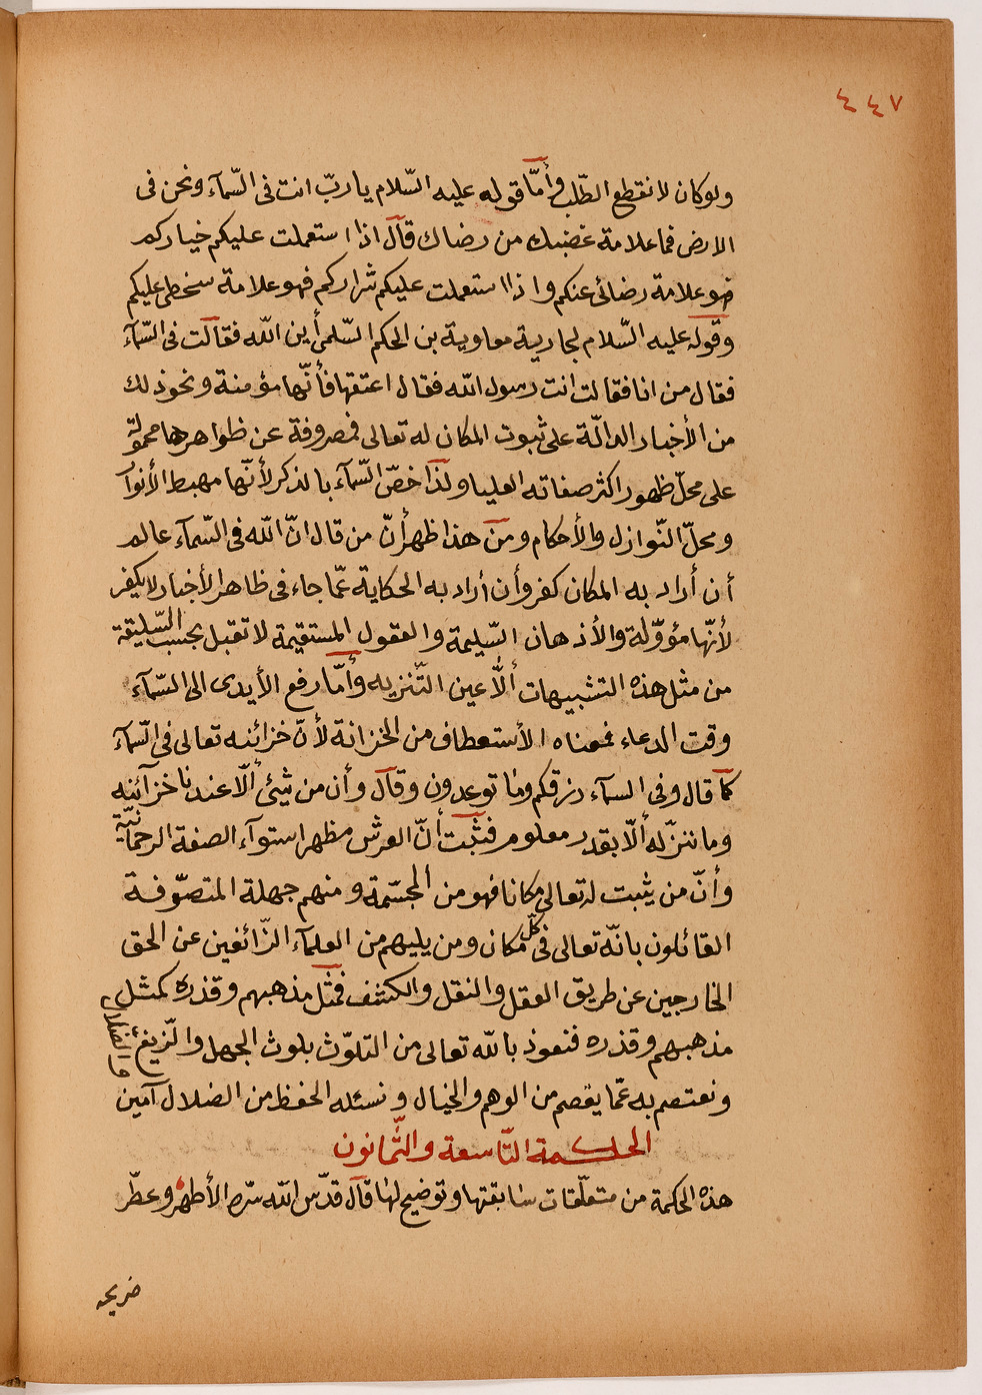 ٤٤٧
ولوكان لانقطع الطّلب وأمّا قوله عليه السّلام يا ربّ انت فى السّمآء ونحن فى
الارض فما علامة غضبك من رضاك قال اذا استعملت عليكم خياركم
فهو علامة رضائى عنكم واذا استعملت عليكم شراركم فهو علامة سخطى عليكم
وقوله عليه السّلام لجارية معاوية بن الحكم السّلمى أين اللّه فقالت فى السّمآء
فقال من انا فقالت انت رسول اللّه فقال اعتقها فأنّها مؤمنة ونحو ذلك
من الأخبار الدالّة على ثبوت المكان له تعالى فمصروفة عن ظواهرها محمولة
على محلّ ظهور اكثر صفاته العليا ولذا خصّ السّمآء بالذكر لأنّها مهبط الأنوار
ومحلّ النّوازل والأحكام ومن هذا ظهر أنّ من قال انّ اللّه فى السّمآء عالم
أن أراد به المكان كفر وأن أراد به الحكاية عمّا جاء فى ظاهر الأخبار لا يكفر
لأنّها مؤوّلة والأذهان السّليمة والعقول المستقيمة لا تقبل بحسب السّليقة
من مثل هذه التشبيهات ألّا عين التّنزيه وأمّا رفع الأيدى الى السّمآء
وقت الدعاء فمعناه الأستعطاف من الخزانة لأنّ خزائنه تعالى فى السّمآء
كما قال وفى السمآء رزقكم وما توعدون وقال وأن من شيئ ألّا عندنا خزآئنه
وما ننزّله ألّا بقدر معلوم فثبت أنّ العرش مظهر استوآء الصفة الرحمآنيّة
وأنّ من يثبت له تعالى مكانا فهو من المجسّمة ومنهم جهلة المتصوّفة
القائلون بانّه تعالى فى كلّ مكان ومن يليهم من العلمآء الزّائغين عن الحق
الخارجين عن طريق العقل والنقل والكشف فمثل مذهبهم وقذره كمثل
مذهبهم وقذره فنعوذ باللّه تعالى من التلوّث بلوث الجهل والزّيغ والضلال
ونعتصم به عمّا يقصم من الوهم والخيال ونسئله الحفظ من الضلال آمين
الحكمة التّاسعة والثّمانون
هذه الحكمة من متعلّقات سابقتها وتوضيح لها قال قدّس اللّه سرّه الأطهر وعطّر
ضريحه